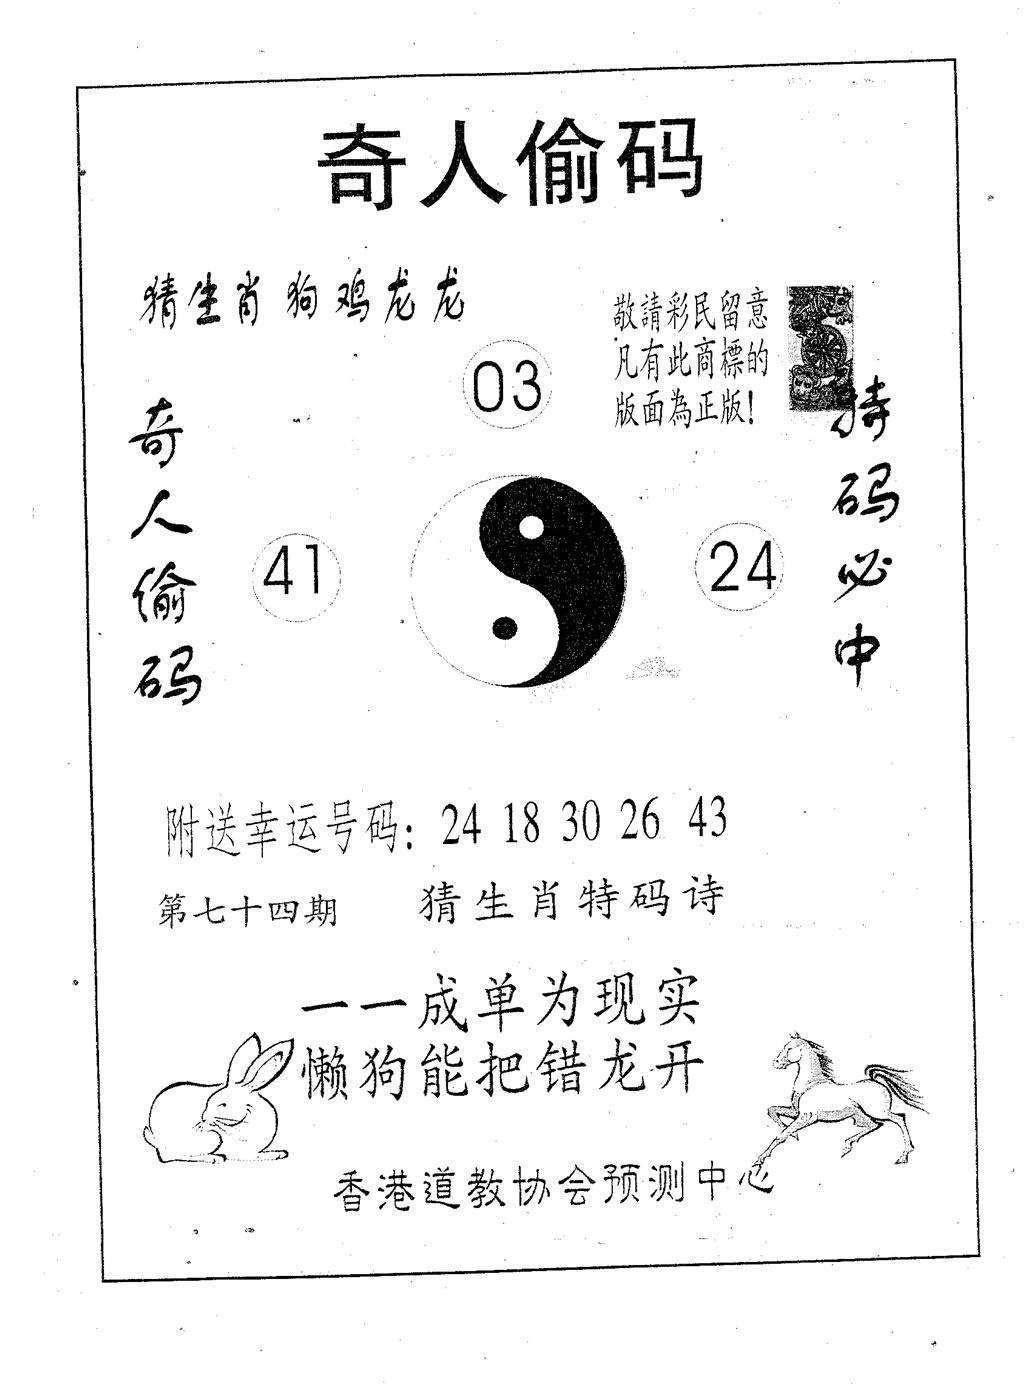 奇人偷码
猜生肖狗鸡龙龙
敬請彩民留意
凡有此商標的
版面為正版!
03
奇人偷码
特码必中
41
24
附送幸运号码: 24 18 30 26 43
第七十四期 猜生肖特码诗
一一成单为现实
懒狗能把错龙开
香港道教协会预测中心